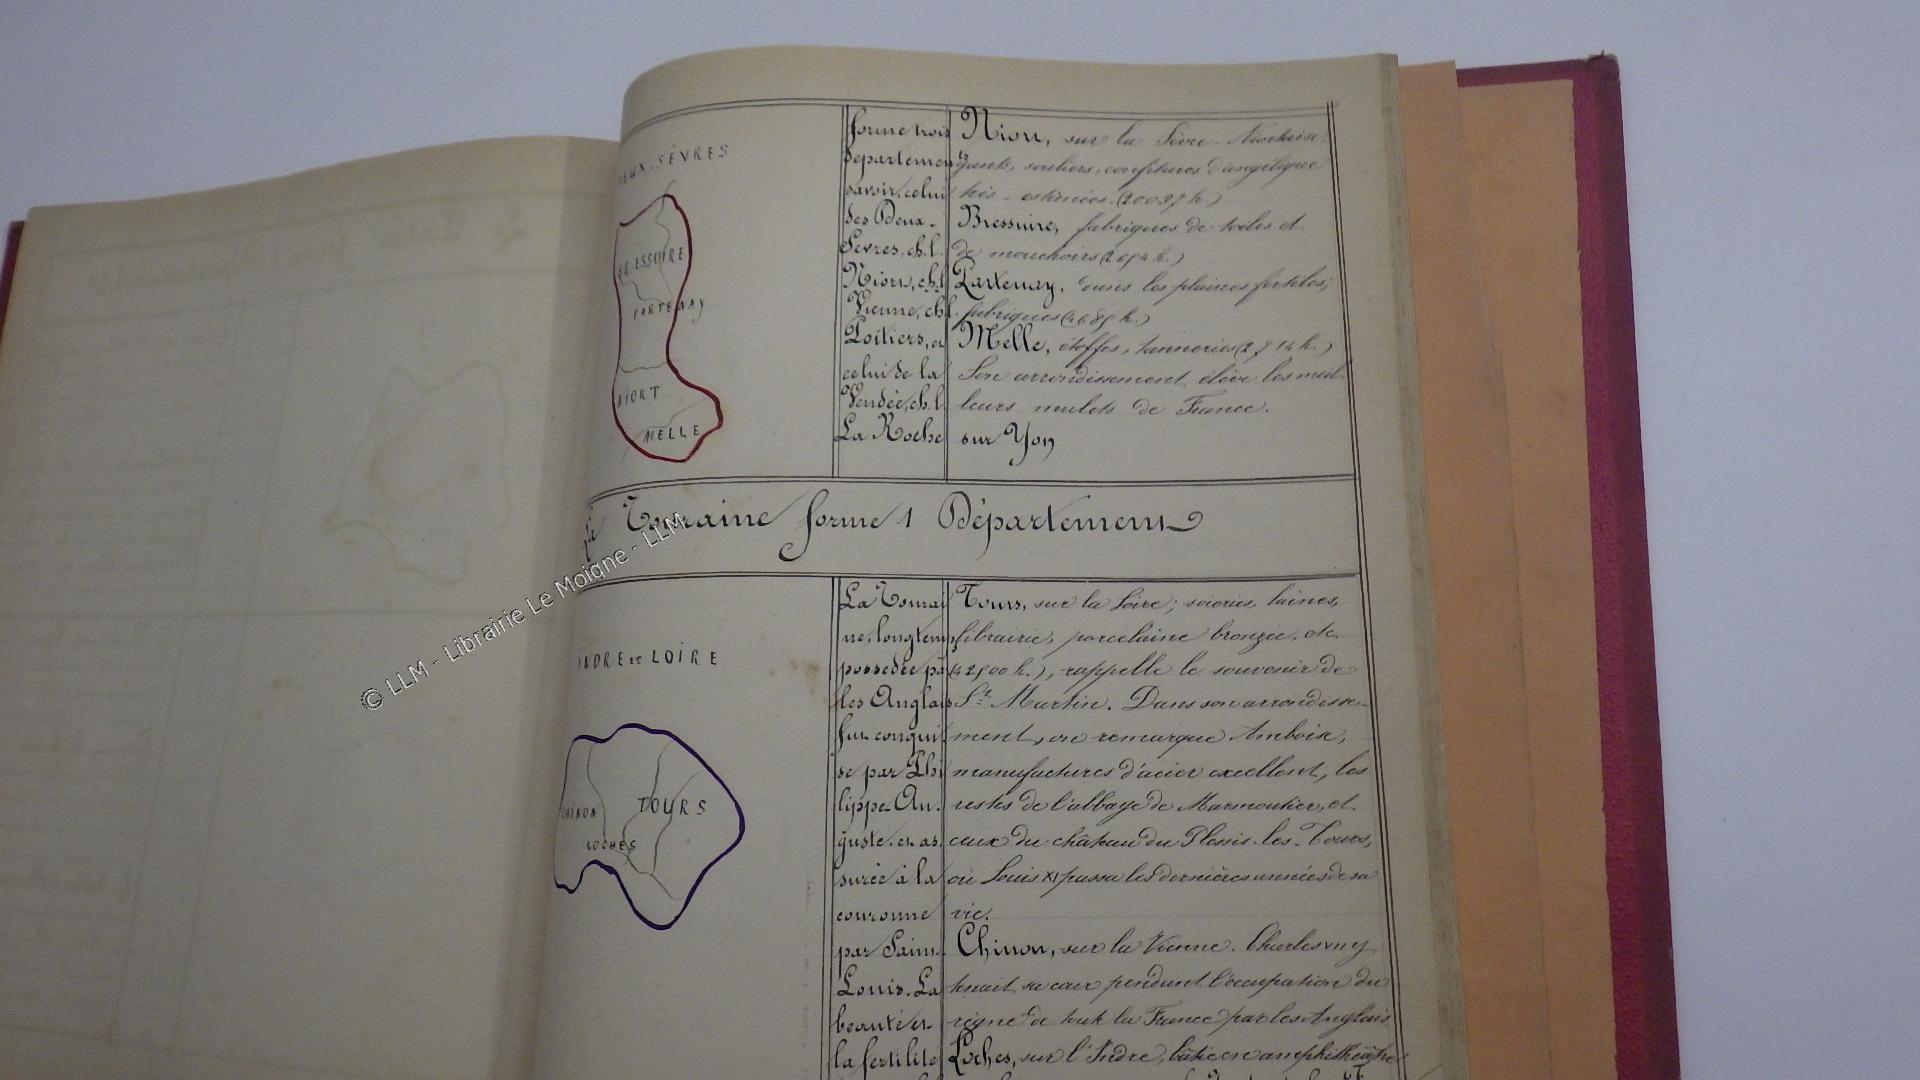 DEUX-SÈVRES
BRESSUIRE
PARTENAY
NIORT
MELLE
forme trois
départements
savoir, celui
des Deux-
Sèvres, ch.l.
Niort, ch.l
Vienne, ch.l.
Poitiers, et
celui de la
Vendée, ch.l.
La Roche sur Yon
Niort, sur la Sèvre-Niortaise
gants, souliers, confitures d'angélique
très-estimées.
Bressuire, fabriques de toiles et
de mouchoirs
Partenay, dans les plaines fertiles;
fabriques
Melle, étoffes, tanneries
Son arrondissement élève les meil-
leurs mulets de France.
La Touraine forme 1 Département
INDRE et LOIRE
CHINON
TOURS
LOCHES
La Tourai
ne, longtemps
possédée par
les Anglais
fut conqui
se par Phi
lippe-Au-
guste, et as-
surée à la
couronne
par Saint
Louis. La
beauté et
la fertilité
Tours, sur la Loire; soieries, laines,
librairie, porcelaine bronzée, etc.
(42500 h.), rappelle le souvenir de
St Martin. Dans son arrondisse-
ment, on remarque Amboise,
manufactures d'acier excellent, les
restes de l'abbaye de Marmoutier, et
ceux du château du Plessis-les-Tours,
où Louis XI passa les dernières années de sa
vie.
Chinon, sur la Vienne. Charles VII y
tenait sa cour pendant l'occupation du
règne de toute la France par les Anglais
Loches, sur l'Indre, bâtie en amphithéâtre
© LLM - Librairie Le Moigne - LLM